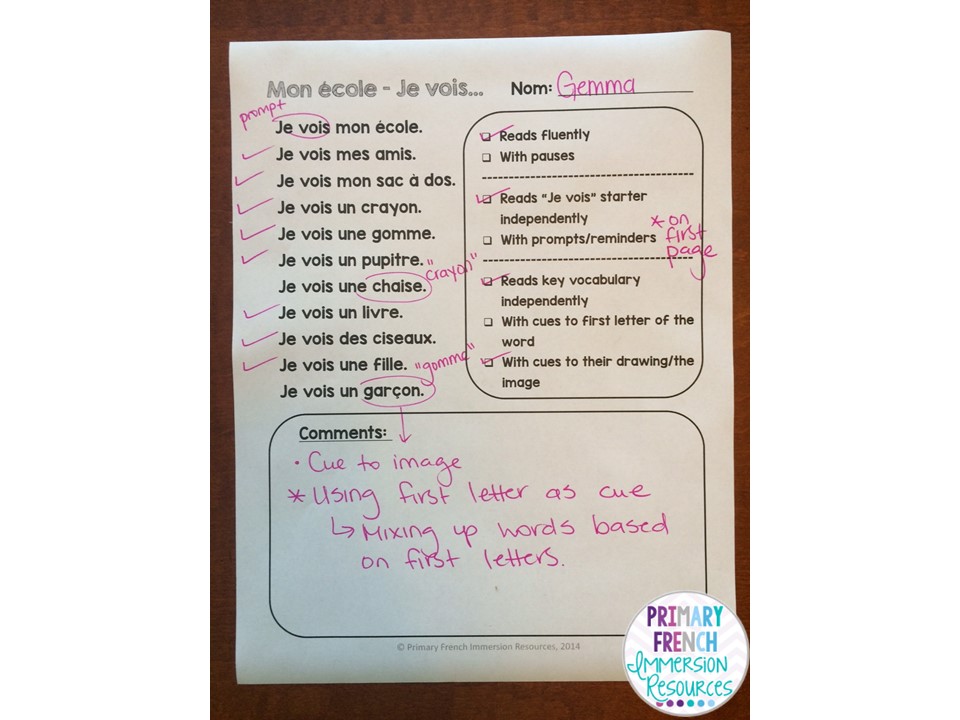 Mon école - Je vois... Nom: Gemma
prompt
Je vois mon école.
Je vois mes amis.
Je vois mon sac à dos.
Je vois un crayon.
Je vois une gomme.
Je vois un pupitre.
"crayon"
Je vois une chaise.
Je vois un livre.
Je vois des ciseaux.
Je vois une fille. "gomme"
Je vois un garçon.
Reads fluently
With pauses
Reads "Je vois" starter
independently
With prompts/reminders
* on
first
page
Reads key vocabulary
independently
With cues to first letter of the
word
With cues to their drawing/the
image
Comments:
• Cue to image
* Using first letter as cue
↳ Mixing up words based
on first letters.
© Primary French Immersion Resources, 2014
PRIMARY
FRENCH
IMMERSION
RESOURCES